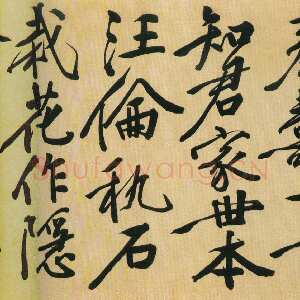 知君家曲本
汪倫枕石
栽花作隱
Shufawang.CN